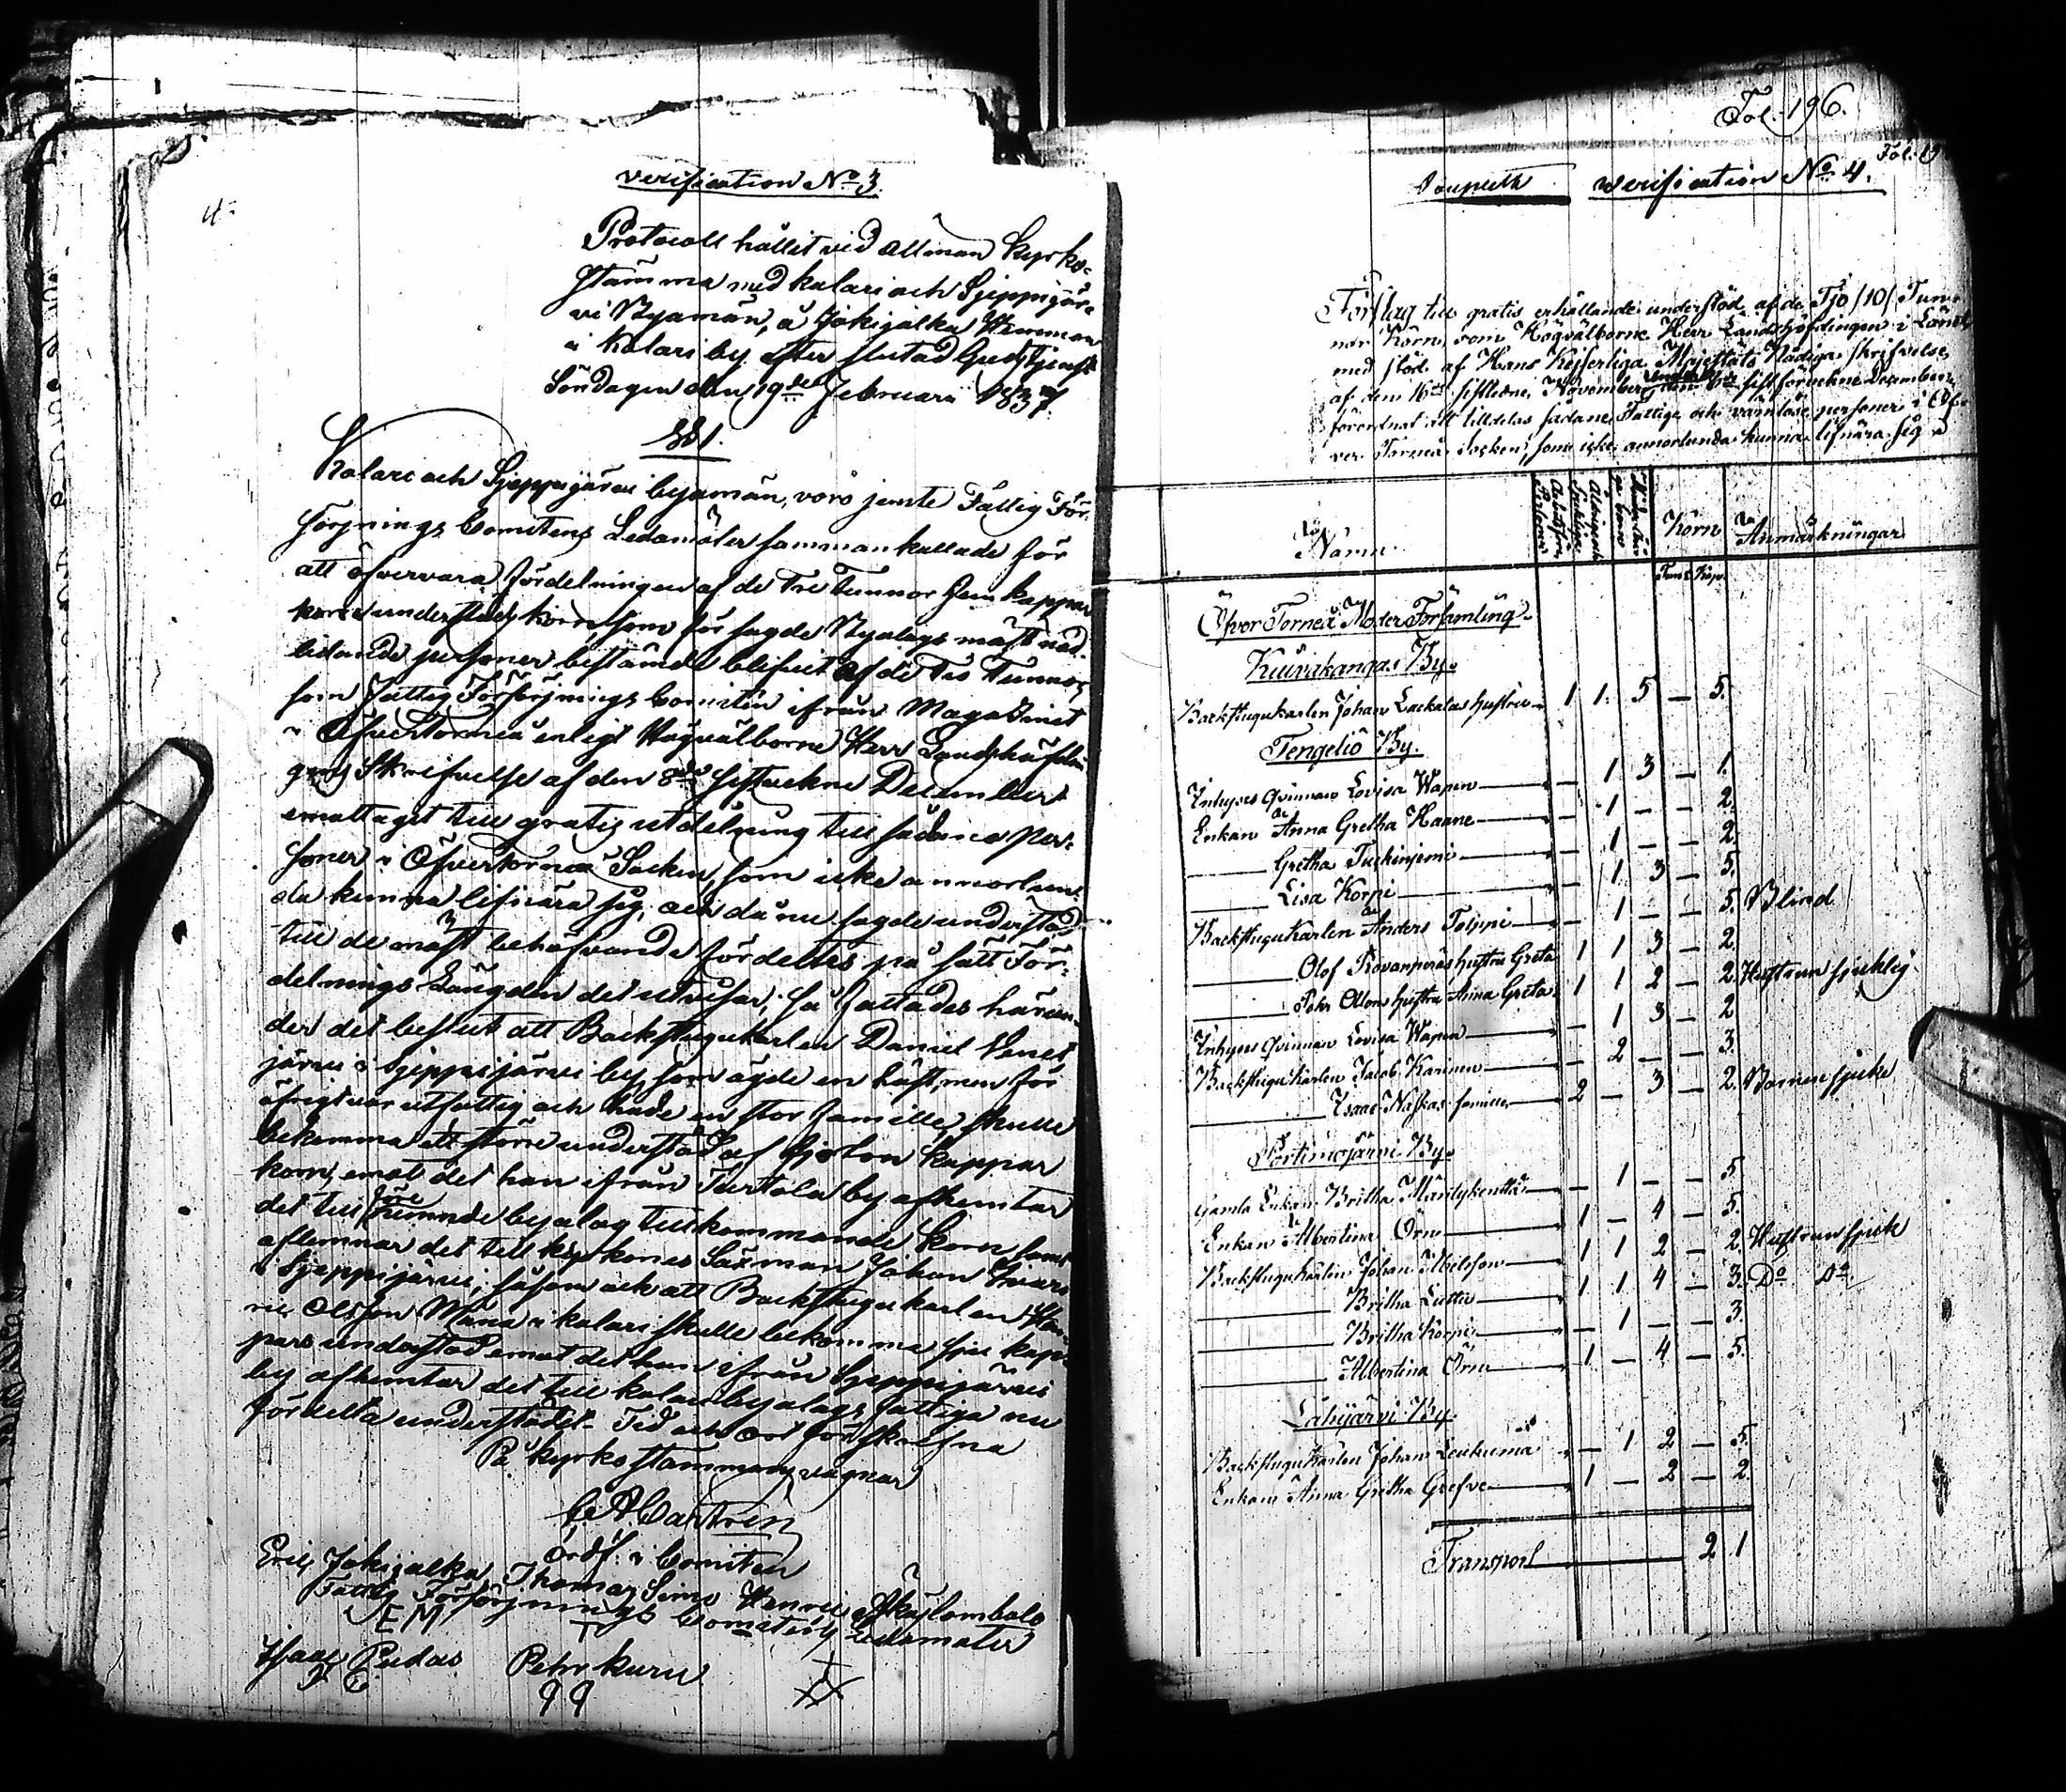 Verification No 3.
Protocoll hållit vid allmän Kyrko-
stämma med Kolari och Sjeppijär-
vi Byamän, å Jokijalka Hemman
i Kolari by efter slutad Gudstjenst
Söndagen den 19de Februari 1837.
§ 1.
Kolari och Sjeppijärvi byamän, voro jemte Fattig För-
sörjnings Comitens Ledamöter sammankallade för
att öfvervara fördelningen af de Tre Tunnor fem kappar
korn understöds korn, som för sagde Byalags mäst nöd-
lidande personer bestämde blifvit af de Tio Tunnor,
som Fattig Försörjnings Comitén ifrån Magazinet
i Öfvertorneå enligt Högvälborne Herr Landshöfdin-
gens Skrifvelse af den 8de sistvekne December
emottaget till gratis utdelning till sådane per-
soner i Öfvertorneå Socken, som icke annorlun-
da kunna lifnära sig, och då nu sagde understöd
till de mäst behöfvande fördeltes på sätt För-
delnings Längden det utvisar, så fattades härun-
der det beslut att Backstugukarlen Daniel Venet-
järvi i Sjeppijärvi by, som ägde en häst, men för
öfrigt var utfattig och hade en stor familie, skulle
bekomma ett större understöd af fjorton kappar
korn, emot det han ifrån Turtola by afhemtar
det till förenämnde byalag tillkommande korn samt
aflemnar det till kyrkones Sexman Johan
i Sjeppijärvi; såsom ock att Backstugukarlen Hen-
ric Olsson Mana i Kolari skulle bekomma sju kap-
pars understöd emot det han ifrån Sjeppijärvi
by afhemtar det till Kolari byalags fattiga nu
fördelta understödet. Tid och ort förskrefna
På Kyrkostämmans vägnar
C. A. Castrén
Ordf: i Comiten
Eric Jokijalka Thomas Simo Henric Äkäslombolo
Fattig Försörjnings Comitens Ledamöter
EM
Isaac Pudas Petr Kuru
Fol. 196.
Verification No 4.
Förslag till gratis erhållande understöd af de Tjo /10/ Tun-
nor Korn, som Högvälborne Herr Landshöfdingen i Länet
med stöd af Hans Kejserliga Majestäts Nådiga skrifvelse
af den 16de sistledne November, sistförvekne December
förordnat att tilldelas sådane Fattige och värnlöse personer i Öf-
ver Torneå Socken, som icke annorlunda kunna lifnära sig
Namn. Korn Anmärkningar
Tun: Kap.
Öfver Torneå Moder Församling.
Kuivakangas By.
Backstugukarlen Johan Lackalas hustru 1 1. 5 — 5.
Tengeliö By.
Inhyses Qvinnan Lovisa Wapen — 1 3 — 1.
Enkan Anna Gretha Haane — 1 — — 2.
Gretha Turkinjemi — 1 — — 2.
Lisa Korpi — 1 3 — 5.
Backstugukarlen Anders Tolppi — 1 — — 5. Blind
Olof Rovanperäs hustru Greta 1 1 3 — 2.
Pehr Ollons hustru Anna Greta 1 1 2 — 2. Hustrun sjuklig
Inhyses Qvinnan Lovisa Wapen — 1 3 — 2
Backstugukarlen Jacob Karinen — 2 — — 3.
Isaac Naskas familie 2 — 3 — 2. Barnen sjuka
Portimojärvi By.
Gamla Enkan Britha Mändykenttä — 1 — — 5.
Enkan Albertina Örn 1 — 4 — 5.
Backstugukarlen Johan Abelsson 1 1 2 — 2. Hustrun sjuk
Britha Lutti 1 1 4 — 3. Do Do
Britha Korpi — 1 — — 3.
Albertina Örn 1 — 4 — 5.
Lahijärvi By.
Backstugukarlen Johan — 1 2 — 5.
Enkan Anna Gretha Grefve 1 — 2 — 2.
Transport 2 1